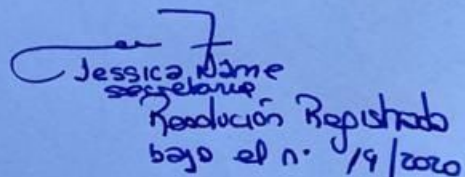 Jessica Dame
secretaria
Resolución Registrada
bajo el n. 19/2020